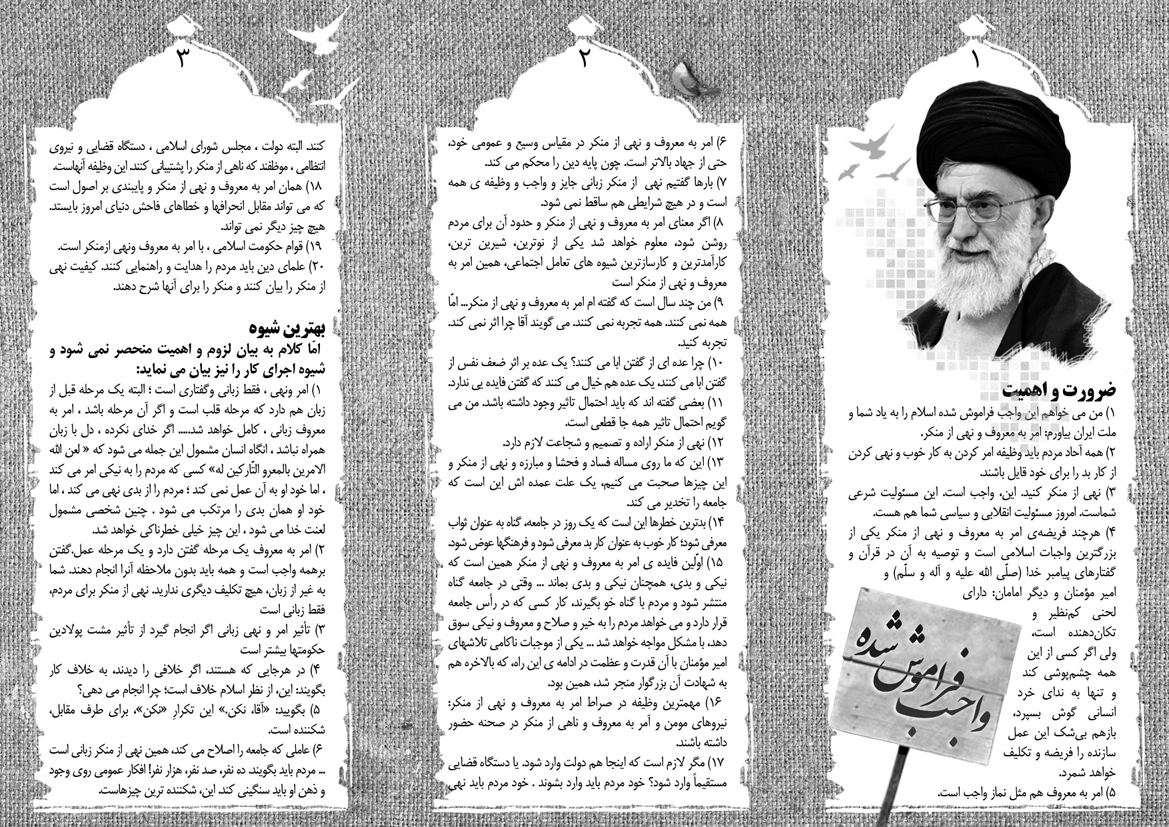 ۱
ضرورت و اهمیت
۱) من می خواهم این واجب فراموش شده اسلام را به یاد شما و
ملت ایران بیاورم: امر به معروف و نهی از منکر.
۲) همه آحاد مردم باید وظیفه امر کردن به کار خوب و نهی کردن
از کار بد را برای خود قایل باشند.
۳) نهی از منکر کنید. این، واجب است. این مسئولیت شرعی
شماست. امروز مسئولیت انقلابی و سیاسی شما هم هست.
۴) هرچند فریضه‌ی امر به معروف و نهی از منکر یکی از
بزرگترین واجبات اسلامی است و توصیه به آن در قرآن و
گفتارهای پیامبر خدا (صلّی الله علیه و آله و سلّم) و
امیر مؤمنان و دیگر امامان: دارای
لحنی کم‌نظیر و
تکان‌دهنده است،
ولی اگر کسی از این
همه چشم‌پوشی کند
و تنها به ندای خرد
انسانی گوش بسپرد،
بازهم بی‌شک این عمل
سازنده را فریضه و تکلیف
خواهد شمرد.
۵) امر به معروف هم مثل نماز واجب است.
واجب فراموش شده
۲
۶) امر به معروف و نهی از منکر در مقیاس وسیع و عمومی خود،
حتی از جهاد بالاتر است. چون پایه دین را محکم می کند.
۷) بارها گفتیم نهی از منکر زبانی جایز و واجب و وظیفه ی همه
است و در هیچ شرایطی هم ساقط نمی شود.
۸) اگر معنای امر به معروف و نهی از منکر و حدود آن برای مردم
روشن شود، معلوم خواهد شد یکی از نوترین، شیرین ترین،
کارآمدترین و کارسازترین شیوه های تعامل اجتماعی، همین امر به
معروف و نهی از منکر است
۹) من چند سال است که گفته ام امر به معروف و نهی از منکر... امّا
همه نمی کنند. همه تجربه نمی کنند. می گویند آقا چرا اثر نمی کند.
تجربه کنید.
۱۰) چرا عده ای از گفتن ابا می کنند؟ یک عده بر اثر ضعف نفس از
گفتن ابا می کنند، یک عده هم خیال می کنند که گفتن فایده یی ندارد.
۱۱) بعضی گفته اند که باید احتمال تاثیر وجود داشته باشد. من می
گویم احتمال تاثیر همه جا قطعی است.
۱۲) نهی از منکر اراده و تصمیم و شجاعت لازم دارد.
۱۳) این که ما روی مساله فساد و فحشا و مبارزه و نهی از منکر و
این چیزها صحبت می کنیم، یک علت عمده اش این است که
جامعه را تخدیر می کند.
۱۴) بدترین خطرها این است که یک روز در جامعه، گناه به عنوان ثواب
معرفی شود؛ کار خوب به عنوان کار بد معرفی شود و فرهنگها عوض شود.
۱۵) اوّلین فایده ی امر به معروف و نهی از منکر همین است که
نیکی و بدی، همچنان نیکی و بدی بماند ... وقتی در جامعه گناه
منتشر شود و مردم با گناه خو بگیرند، کار کسی که در رأس جامعه
قرار دارد و می خواهد مردم را به خیر و صلاح و معروف و نیکی سوق
دهد، با مشکل مواجه خواهد شد ... یکی از موجبات ناکامی تلاشهای
امیر مؤمنان با آن قدرت و عظمت در ادامه ی این راه، که بالاخره هم
به شهادت آن بزرگوار منجر شد، همین بود.
۱۶) مهمترین وظیفه در صراط امر به معروف و نهی از منکر:
نیروهای مومن و آمر به معروف و ناهی از منکر در صحنه حضور
داشته باشند.
۱۷) مگر لازم است که اینجا هم دولت وارد شود. یا دستگاه قضایی
مستقیماً وارد شود؟ خود مردم باید وارد بشوند . خود مردم باید نهی
۳
کنند. البته دولت ، مجلس شورای اسلامی ، دستگاه قضایی و نیروی
انتظامی ، موظفند که ناهی از منکر را پشتیبانی کنند. این وظیفه آنهاست.
۱۸) همان امر به معروف و نهی از منکر و پایبندی بر اصول است
که می تواند مقابل انحرافها و خطاهای فاحش دنیای امروز بایستد.
هیچ چیز دیگر نمی تواند.
۱۹) قوام حکومت اسلامی ، با امر به معروف ونهی ازمنکر است.
۲۰) علمای دین باید مردم را هدایت و راهنمایی کنند. کیفیت نهی
از منکر را بیان کنند و منکر را برای آنها شرح دهند.
بهترین شیوه
امّا کلام به بیان لزوم و اهمیت منحصر نمی شود و
شیوه اجرای کار را نیز بیان می نماید:
۱) امر ونهی ، فقط زبانی وگفتاری است ؛ البته یک مرحله قبل از
زبان هم دارد که مرحله قلب است و اگر آن مرحله باشد ، امر به
معروف زبانی ، کامل خواهد شد..... اگر خدای نکرده ، دل با زبان
همراه نباشد ، انگاه انسان مشمول این جمله می شود که « لعن الله
الامرین بالمعرو التّارکین له» کسی که مردم را به نیکی امر می کند
، اما خود او به آن عمل نمی کند ؛ مردم را از بدی نهی می کند ، اما
خود او همان بدی را مرتکب می شود . چنین شخصی مشمول
لعنت خدا می شود ، این چیز خیلی خطرناکی خواهد شد.
۲) امر به معروف یک مرحله گفتن دارد و یک مرحله عمل.گفتن
برهمه واجب است و همه باید بدون ملاحظه آنرا انجام دهند. شما
به غیر از زبان، هیچ تکلیف دیگری ندارید. نهی از منکر برای مردم،
فقط زبانی است
۳) تأثیر امر و نهی زبانی اگر انجام گیرد از تأثیر مشت پولادین
حکومتها بیشتر است
۴) در هرجایی که هستند، اگر خلافی را دیدند، به خلاف کار
بگویند: این، از نظر اسلام خلاف است؛ چرا انجام می دهی؟
۵) بگویید: «آقا، نکن.» این تکرارِ «نکن»، برای طرف مقابل،
شکننده است.
۶) عاملی که جامعه را اصلاح می کند، همین نهی از منکر زبانی است
... مردم باید بگویند. ده نفر، صد نفر، هزار نفر! افکار عمومی روی وجود
و ذهن او باید سنگینی کند. این، شکننده ترین چیزهاست.